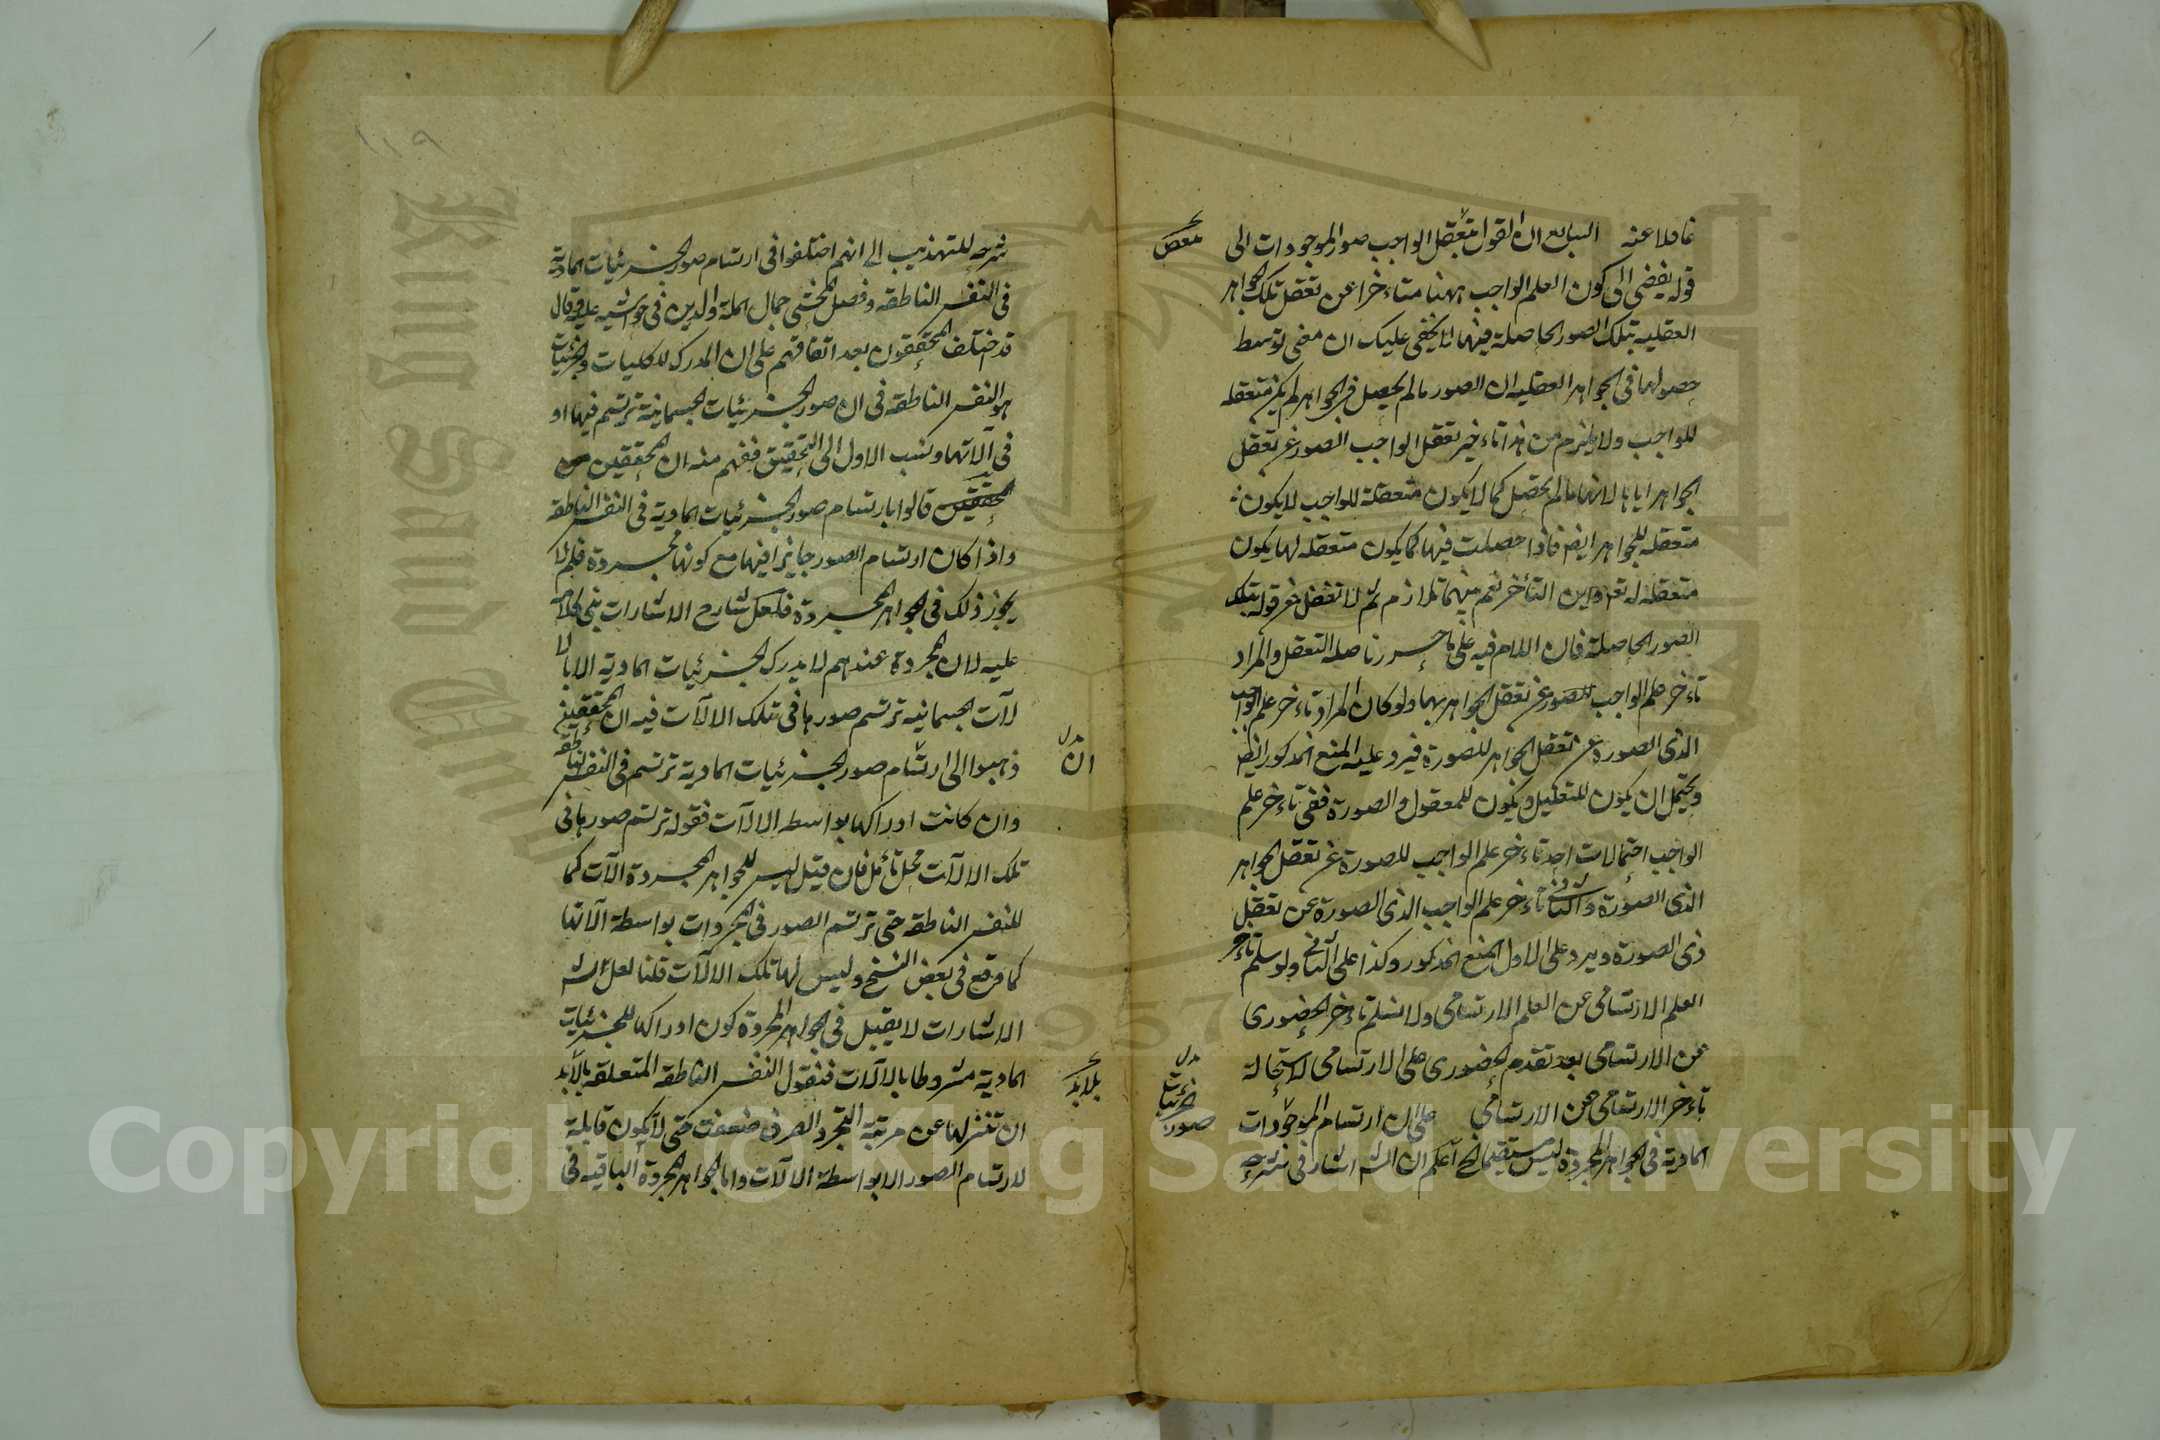 غافلا عنه السابع ان القول بتعقل الواجب صور الموجودات الى
قوله يفضي الى كون العلم الواجب ههنا متأخرا عن تعقل تلك الجواهر
العقلية بتلك الصور الحاصلة فيها لا يخفى عليك ان معنى توسط
حصولها في الجواهر العقلية ان الصور ما لم يحصل في الجواهر لم يكن متعقلة
للواجب ولا يلزم من هذا تاخير تعقل الواجب الصور عن تعقل
الجواهر اياها لانها ما لم تحصل كما لا يكون متعقلة للواجب لا يكون
متعقلة للجواهر ايضا فاذا حصلت فيها كما يكون متعقلة لها يكون
متعقلة له تع واين التأخر نعم بينهما تلازم ثم لا تغفل عن قوله بتلك
الصور الحاصلة فان اللام فيه على ما حررنا صلة التعقل والمراد
تاخر علم الواجب للصور عن تعقل الجواهر بها ولو كان المراد تاخر علم الواجب
الذي الصورة عن تعقل الجواهر للصورة فيرد عليه المنع المذكور ايضا
ويحتمل ان يكون للتعليل ويكون للمعقول والصورة ففي تاخر علم
الواجب احتمالات احدها تاخر علم الواجب للصورة عن تعقل الجواهر
الذي الصورة والثاني تاخر علم الواجب الذي الصورة عن تعقل
ذي الصورة ويرد على الاول المنع المذكور وكذا على الثاني ولو سلم تاخر
العلم الارتسامي عن العلم الارتسامي ولا نسلم تاخر الحضوري
عن الارتسامي بعد تقدم الحضوري على الارتسامي لاستحالة
تاخر الارتسامي عن الارتسامي على ان ارتسام الموجودات
المادية في الجواهر المجردة ليس مستقيما الخ اعلم ان الش اشار في شرحه
بعض
بدل
صور الجزئيات
شرحه للتهذيب الى انهم اختلفوا في ارتسام صور الجزئيات المادية
في النفس الناطقة وفصل المحشي جمال الملة والدين في حواشيه عليه وقال
قد اختلف المحققون بعد اتفاقهم على ان المدرك للكليات والجزئيات
هو النفس الناطقة في ان صور الجزئيات الجسمانية ترتسم فيها او
في آلاتها ونسب الاول الى التحقيق ففهم منه ان المحققين من
المحققين قالوا بارتسام صور الجزئيات المادية في النفس الناطقة
واذا كان ارتسام الصور جايزا فيها مع كونها مجردة فلم لا
يجوز ذلك في الجواهر المجردة فلعل شارح الاشارات بنى كلامه
عليه لان المجردة عندهم لا يدرك الجزئيات المادية الا بالا
لات الجسمانية ترتسم صورها في تلك الالات فيه ان المحققين
ذهبوا الى ارتسام صور الجزئيات المادية ترتسم في النفس الناطقة
وان كانت ادراكها بواسطه الالات فقوله ترتسم صورها في
تلك الالات محل تأمل فان قيل ليس للجواهر المجردة الات كما
للنفس الناطقة حتى ترتسم الصور في المجردات بواسطة آلاتها
كما وقع في بعض النسخ وليس لها تلك الالات قلنا لعل الش
الاشارات لا يقبل في الجواهر المجردة كون ادراكها للجزئيات
المادية مشروطا بالالات فنقول النفس الناطقة المتعلقة بالابد
ان تنزلها عن مرتبة التجرد الصرف ضعفت حتى لا تكون قابلة
لارتسام الصور الا بواسطة الالات واما الجواهر المجردة الباقية في
بدل
ان
١١٩
Copyright © King Saud University
King Saud University
1957